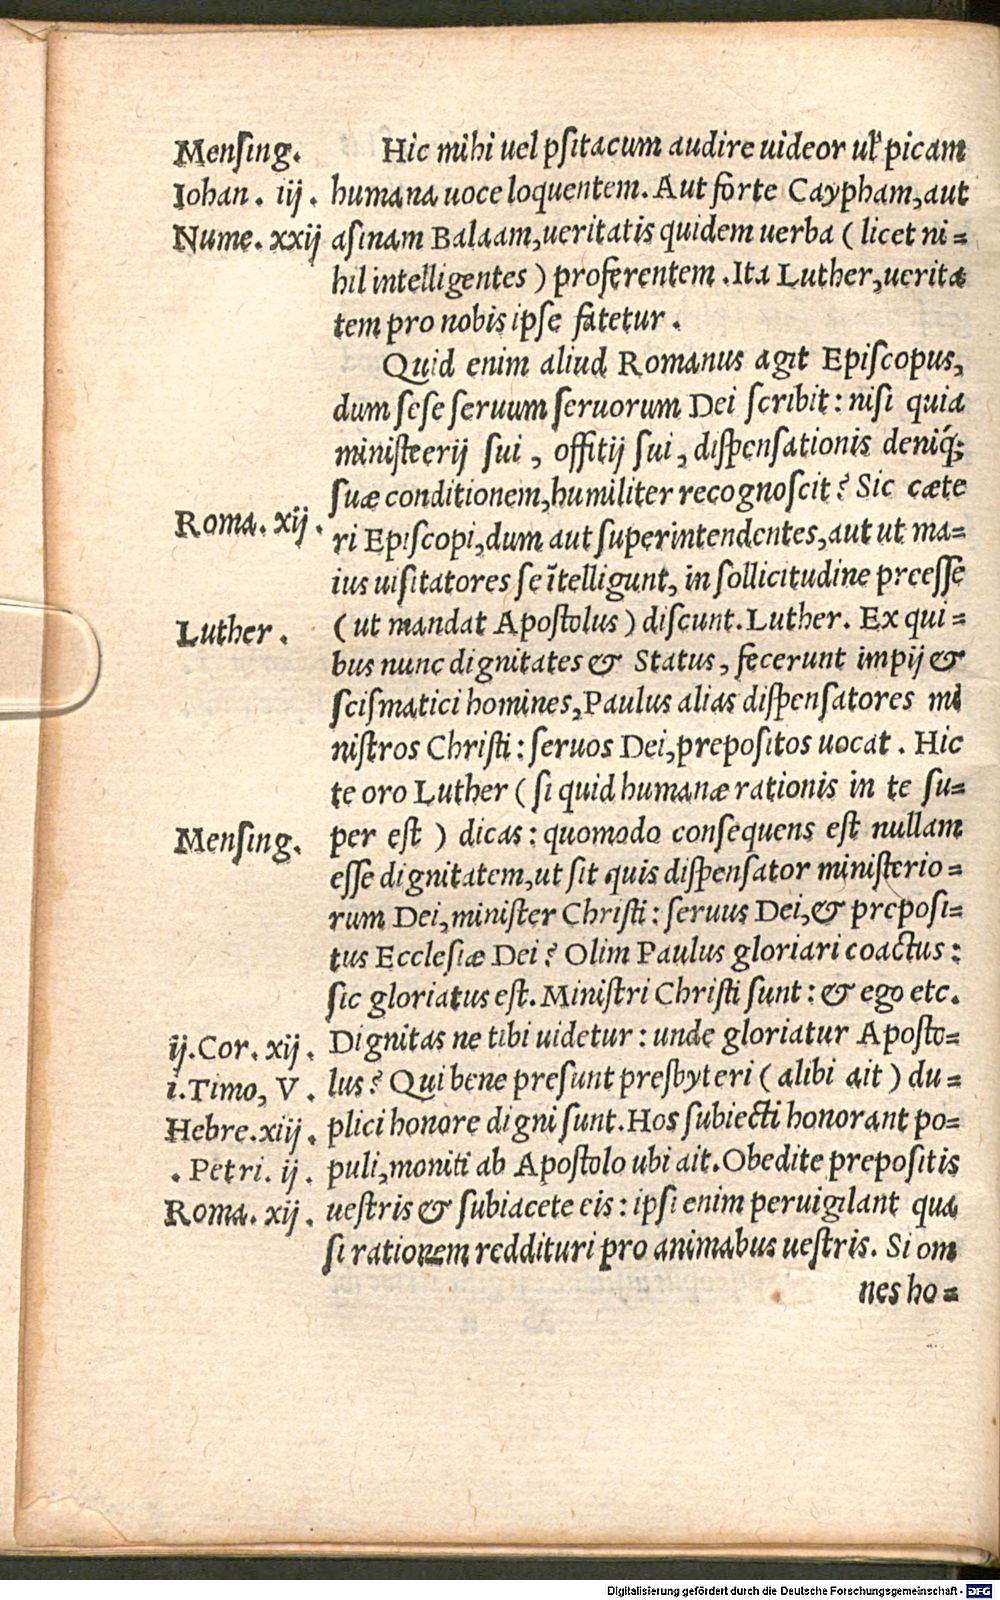 Mensing. Hic mihi uel psitacum audire uideor ul̓ picam
Iohan. iij. humana uoce loquentem. Aut forte Caypham, aut
Nume. xxij asinam Balaam, ueritatis quidem uerba ( licet ni=
hil intelligentes ) proferentem. Ita Luther, uerita
tem pro nobis ipse fatetur.
Quid enim aliud Romanus agit Episcopus,
dum sese seruum seruorum Dei scribit: nisi quia
ministeerij sui, offitij sui, dispensationis deniq́;
suæ conditionem, humiliter recognoscit? Sic cæte
Roma. xij. ri Episcopi, dum aut superintendentes, aut ut ma=
ius uisitatores se ītelligunt, in sollicitudine preesse
Luther. ( ut mandat Apostolus ) discunt. Luther. Ex qui=
bus nunc dignitates & Status, fecerunt impij &
scismatici homines, Paulus alias dispensatores mi
nistros Christi: seruos Dei, prepositos uocat. Hic
te oro Luther ( si quid humanæ rationis in te su=
Mensing. per est ) dicas: quomodo consequens est nullam
esse dignitatem, ut sit quis dispensator ministerio=
rum Dei, minister Christi: seruus Dei, & preposi=
tus Ecclesiæ Dei? Olim Paulus gloriari coactus:
sic gloriatus est. Ministri Christi sunt: & ego etc.
ij. Cor. xij. Dignitas ne tibi uidetur: unde gloriatur Aposto=
i. Timo, V. lus? Qui bene presunt presbyteri ( alibi ait ) du=
Hebre. xiij. plici honore digni sunt. Hos subiecti honorant po=
. Petri. ij. puli, moniti ab Apostolo ubi ait. Obedite prepositis
Roma. xij. uestris & subiacete eis: ipsi enim peruigilant qua
si rationem reddituri pro animabus uestris. Si om
nes ho=
Digitalisierung gefördert durch die Deutsche Forschungsgemeinschaft - DFG